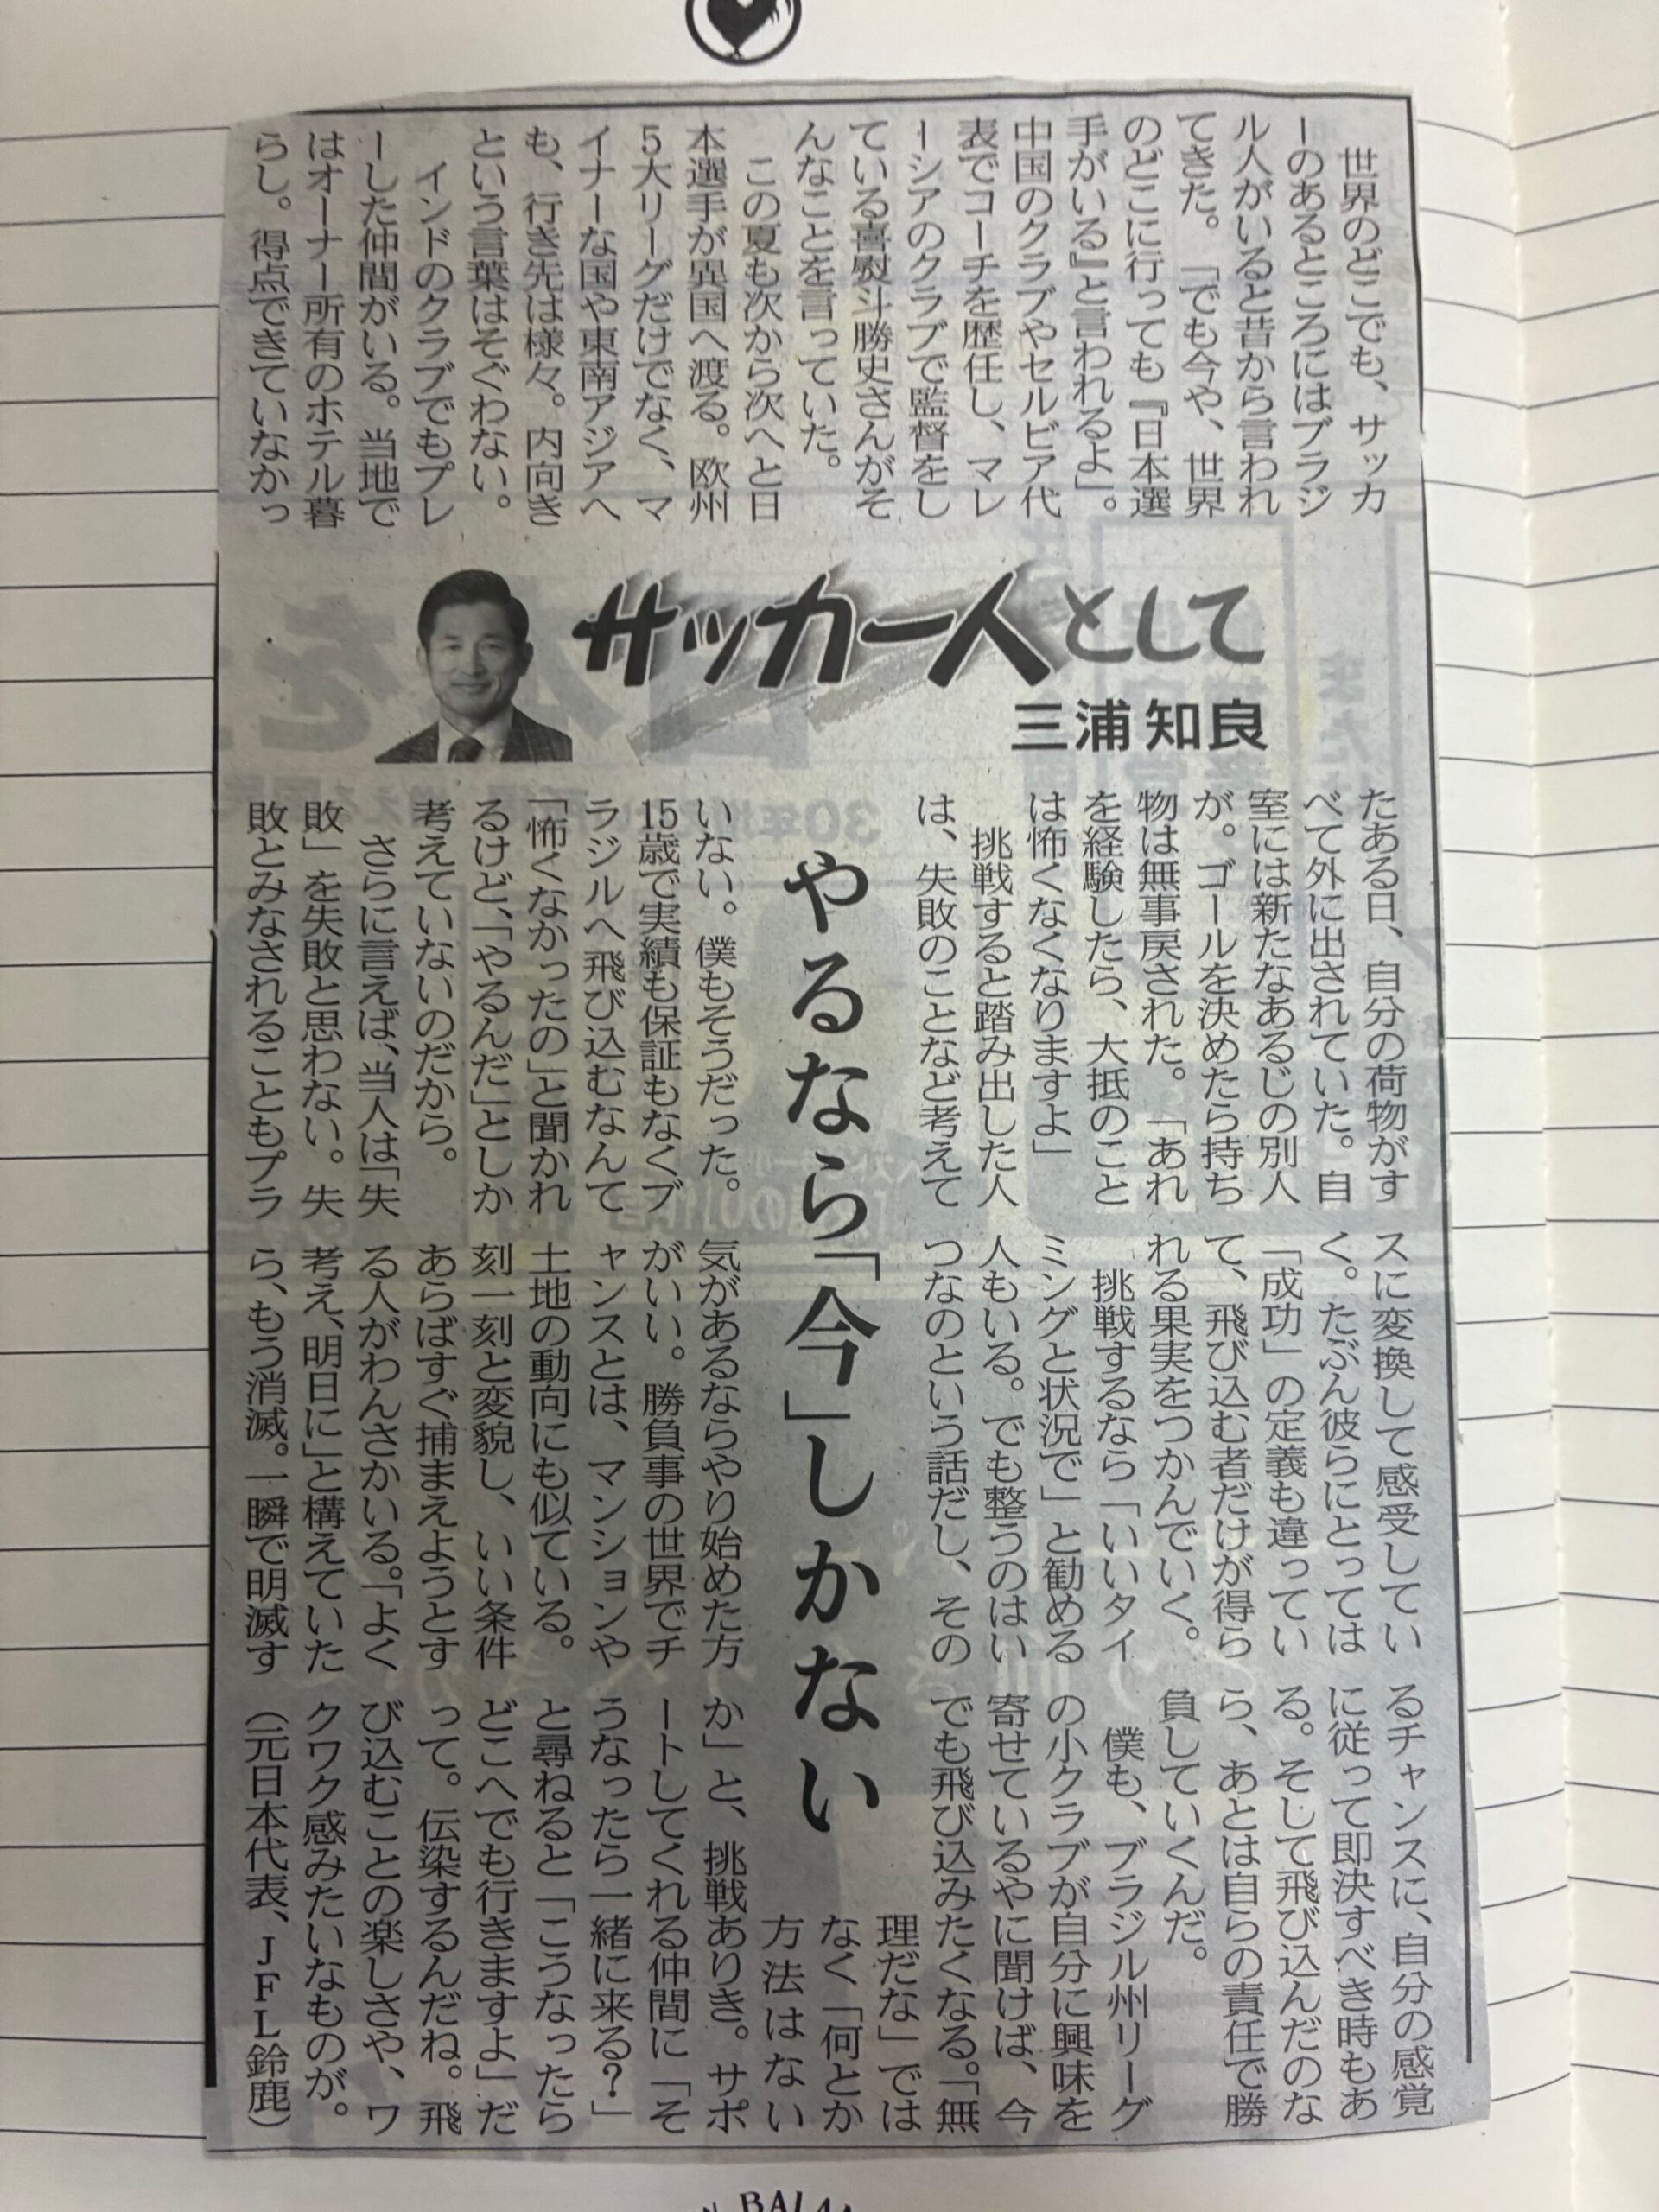 世界のどこでも、サッカ
ーのあるところにはブラジ
ル人がいると昔から言われ
てきた。「でも今や、世界
のどこに行っても『日本選
手がいる』と言われるよ」。
中国のクラブやセルビア代
表でコーチを歴任し、マレ
ーシアのクラブで監督をし
ている喜熨斗勝史さんがそ
んなことを言っていた。
この夏も次から次へと日
本選手が異国へ渡る。欧州
5大リーグだけでなく、マ
イナーな国や東南アジアへ
も、行き先は様々。内向き
という言葉はそぐわない。
インドのクラブでもプレ
ーした仲間がいる。当地で
はオーナー所有のホテル暮
らし。得点できていなかっ
サッカー人として
三浦知良
たある日、自分の荷物がす
べて外に出されていた。自
室には新たなあるじの別人
が。ゴールを決めたら持ち
物は無事戻された。「あれ
を経験したら、大抵のこと
は怖くなくなりますよ」
挑戦すると踏み出した人
は、失敗のことなど考えて
やるなら「今」しかない
いない。僕もそうだった。
15歳で実績も保証もなくブ
ラジルへ飛び込むなんて
「怖くなかったの」と聞かれ
るけど、「やるんだ」としか
考えていないのだから。
さらに言えば、当人は「失
敗」を失敗と思わない。失
敗とみなされることもプラ
スに変換して感受してい
く。たぶん彼らにとっては
「成功」の定義も違ってい
て、飛び込む者だけが得ら
れる果実をつかんでいく。
挑戦するなら「いいタイ
ミングと状況で」と勧める
人もいる。でも整うのはい
つなのという話だし、その
気があるならやり始めた方
がいい。勝負事の世界でチ
ャンスとは、マンションや
土地の動向にも似ている。
刻一刻と変貌し、いい条件
あらばすぐ捕まえようとす
る人がわんさかいる。「よく
考え、明日に」と構えていた
ら、もう消滅。一瞬で明滅す
るチャンスに、自分の感覚
に従って即決すべき時もあ
る。そして飛び込んだのな
ら、あとは自らの責任で勝
負していくんだ。
僕も、ブラジル州リーグ
の小クラブが自分に興味を
寄せているやに聞けば、今
でも飛び込みたくなる。「無
理だな」では
なく「何とか
方法はない
か」と、挑戦ありき。サポ
ートしてくれる仲間に「そ
うなったら一緒に来る？」
と尋ねると「こうなったら
どこへでも行きますよ」だ
って。伝染するんだね。飛
び込むことの楽しさや、ワ
クワク感みたいなものが。
（元日本代表、JFL鈴鹿）